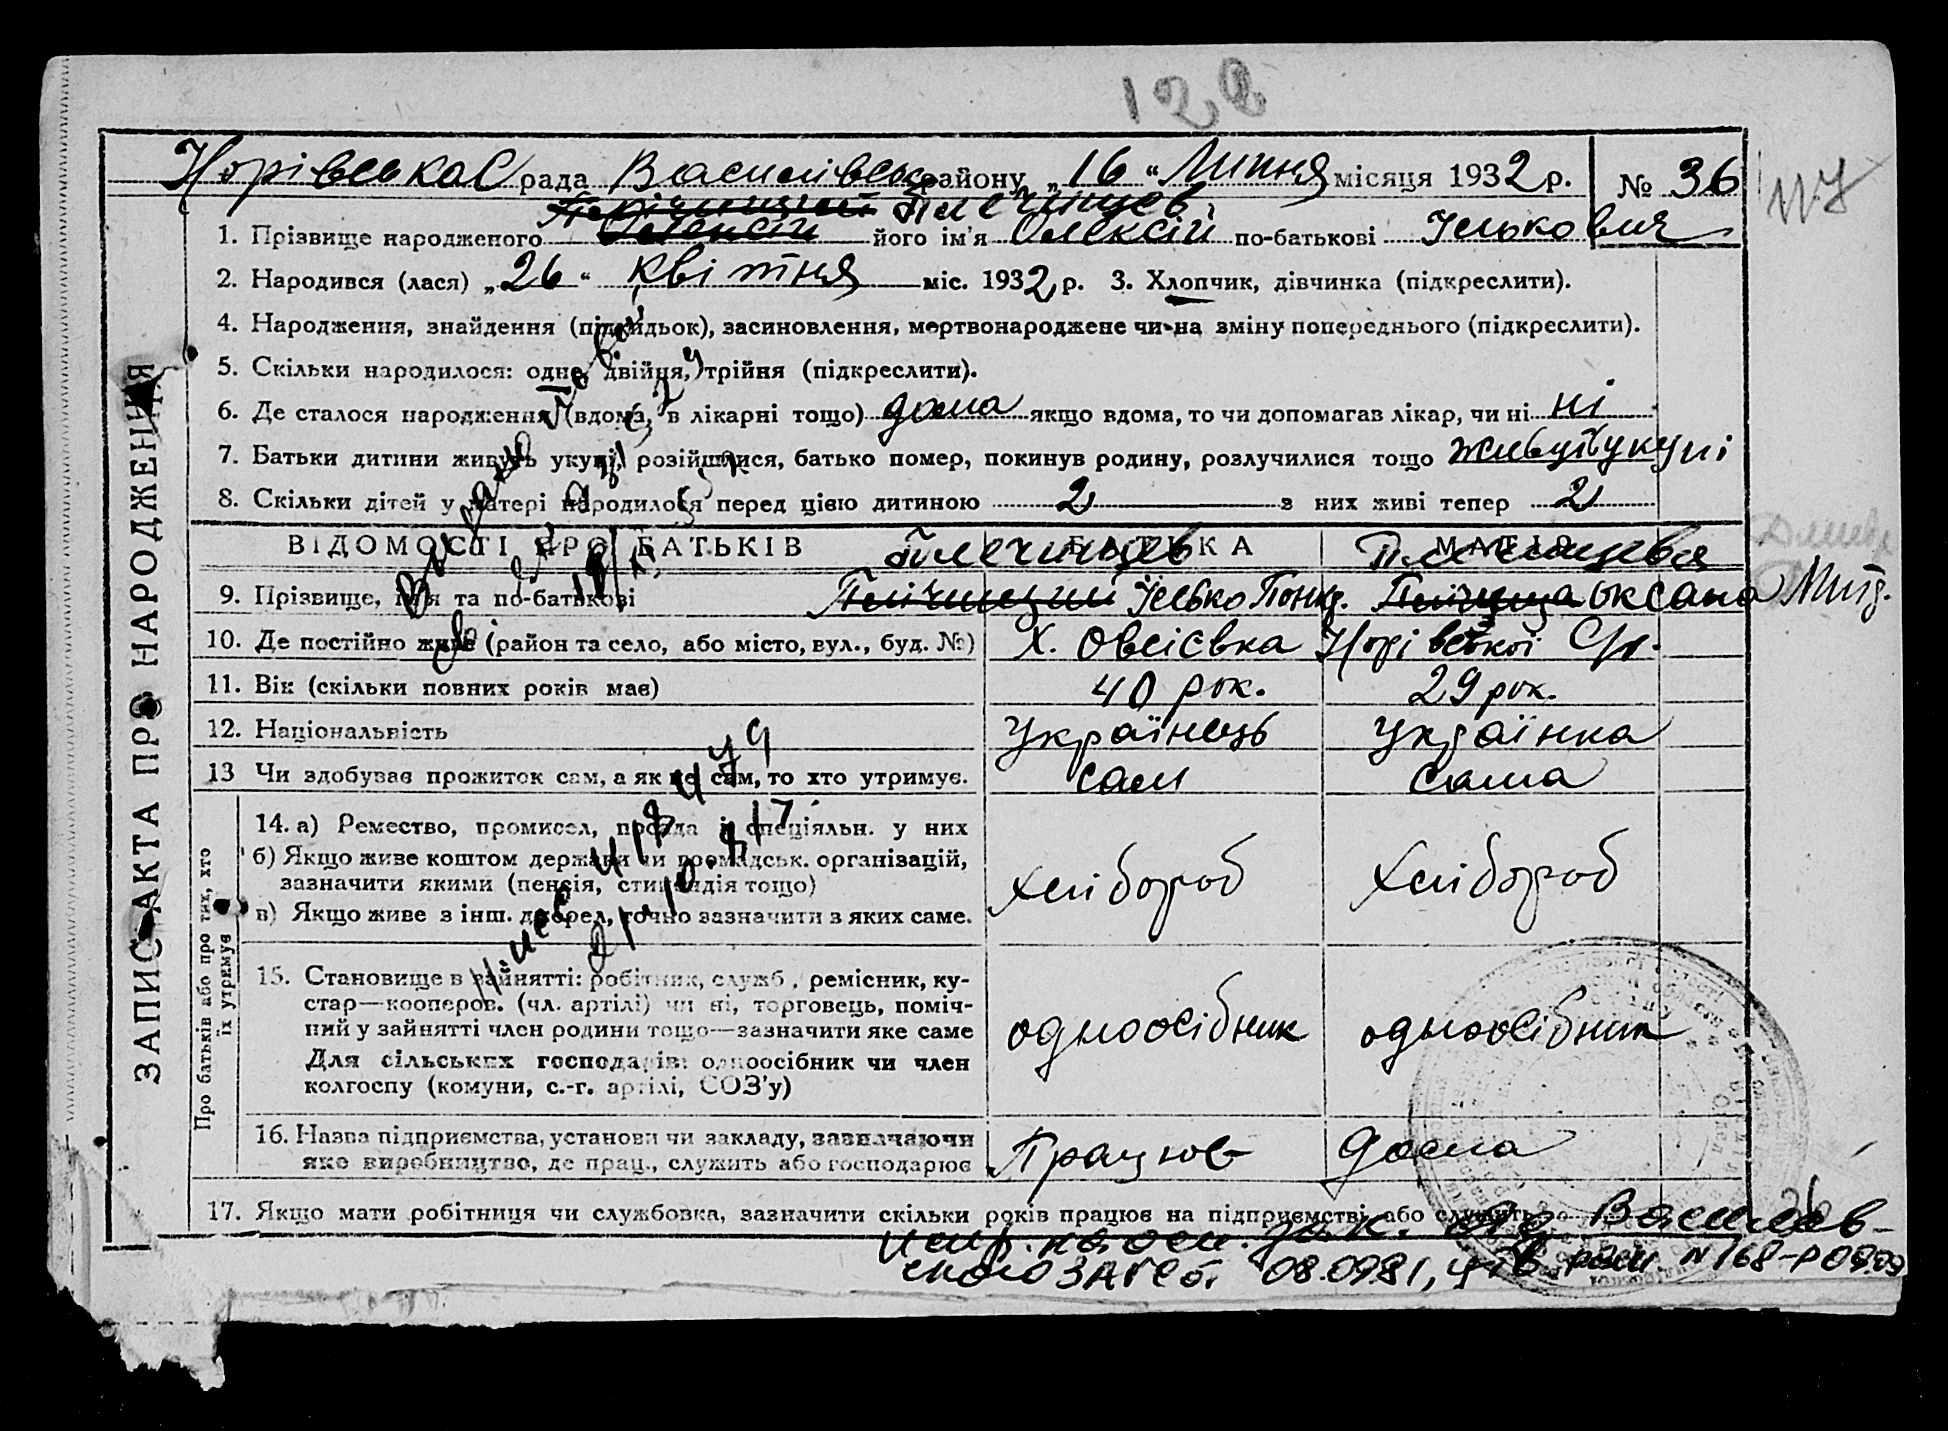 122
Норівська С рада Василівськ району „16“ Липня місяця 1932 р. № 36
Плечищев
1. Прізвище народженого Олексій його ім'я Олексій по-батькові Ількович
2. Народився (лася) „26“ квітня міс. 1932 р. 3. Хлопчик, дівчинка (підкреслити).
4. Народження, знайдення (підкидьок), засиновлення, мертвонароджене чи на зміну попереднього (підкреслити).
5. Скільки народилося: одне, двійня, трійня (підкреслити).
6. Де сталося народження (вдома, в лікарні тощо) дома якщо вдома, то чи допомагав лікар, чи ні ні
7. Батьки дитини живуть укупі, розійшлися, батько помер, покинув родину, розлучилися тощо живуть укупі
8. Скільки дітей у матері народилося перед цією дитиною 2 з них живі тепер 2
ВІДОМОСТІ ПРО БАТЬКІВ БАТЬКА МАТІР
Плечищев Плечищева
9. Прізвище, ім'я та по-батькові Ілько Оксана Мит.
10. Де постійно живе (район та село, або місто, вул., буд. №) Х. Овсієвка Норівської С/р.
11. Вік (скільки повних років має) 40 рок. 29 рок.
12. Національність Українець Українка
13 Чи здобуває прожиток сам, а як не сам, то хто утримує. сам сама
14. а) Ремество, промисел, посада й спеціяльн. у них
б) Якщо живе коштом держави чи громадськ. організацій,
зазначити якими (пенсія, стипендія тощо)
в) Якщо живе з інш. джерел, точно зазначити з яких саме.
хлібороб хлібороб
15. Становище в зайнятті: робітник, служб., ремісник, ку-
стар—кооперов. (чл. артілі) чи ні, торговець, поміч-
ний у зайнятті член родини тощо—зазначити яке саме
Для сільських господарів: одноосібник чи член
колгоспу (комуни, с.-г. артілі, СОЗ'у)
одноосібник одноосібник
16. Назва підприємства, установи чи закладу, зазначаючи
яке виробництво, де прац., служить або господарює
Працює дома
17. Якщо мати робітниця чи службовка, зазначити скільки років працює на підприємстві або служить
испр. на осн. зак. Василев-
ского ЗАГСа от 08.0981,
ЗАПИС АКТА ПРО НАРОДЖЕННЯ
Про батьків або про тих, хто
їх утримує